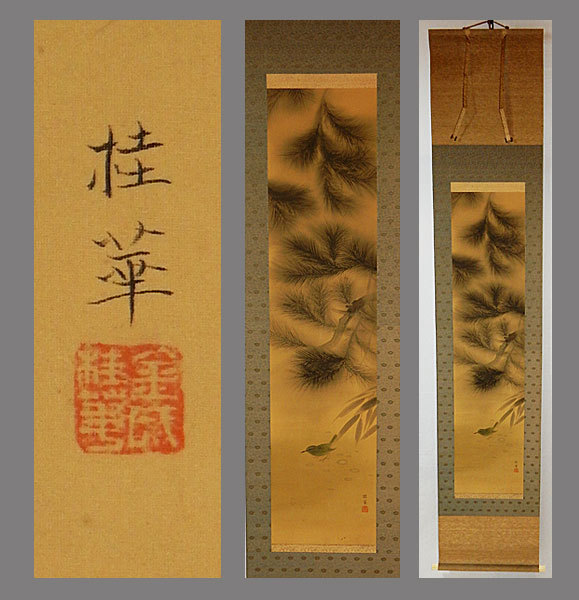 桂華
金城
桂華